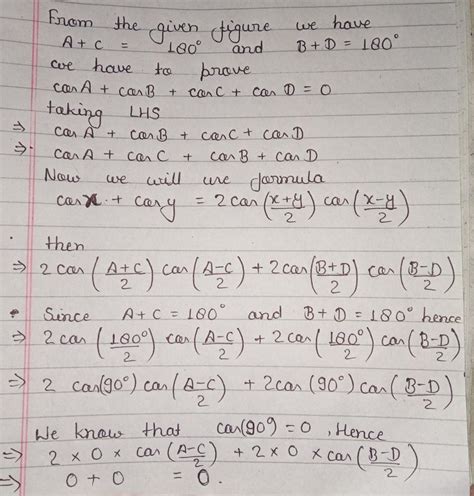 From the given figure we have
A + C = 180° and B + D = 180°
we have to prove
cos A + cos B + cos C + cos D = 0
taking LHS
⇒ cos A + cos B + cos C + cos D
⇒ cos A + cos C + cos B + cos D
Now we will use formula
cos x + cos y = 2 cos (x+y/2) cos (x-y/2)
then
⇒ 2 cos (A+C/2) cos (A-C/2) + 2 cos (B+D/2) cos (B-D/2)
• Since A + C = 180° and B + D = 180° hence
⇒ 2 cos (180°/2) cos (A-C/2) + 2 cos (180°/2) cos (B-D/2)
⇒ 2 cos(90°) cos (A-C/2) + 2 cos (90°) cos (B-D/2)
We know that cos(90°) = 0 , Hence
⇒ 2 × 0 × cos (A-C/2) + 2 × 0 × cos (B-D/2)
⇒ 0 + 0 = 0.